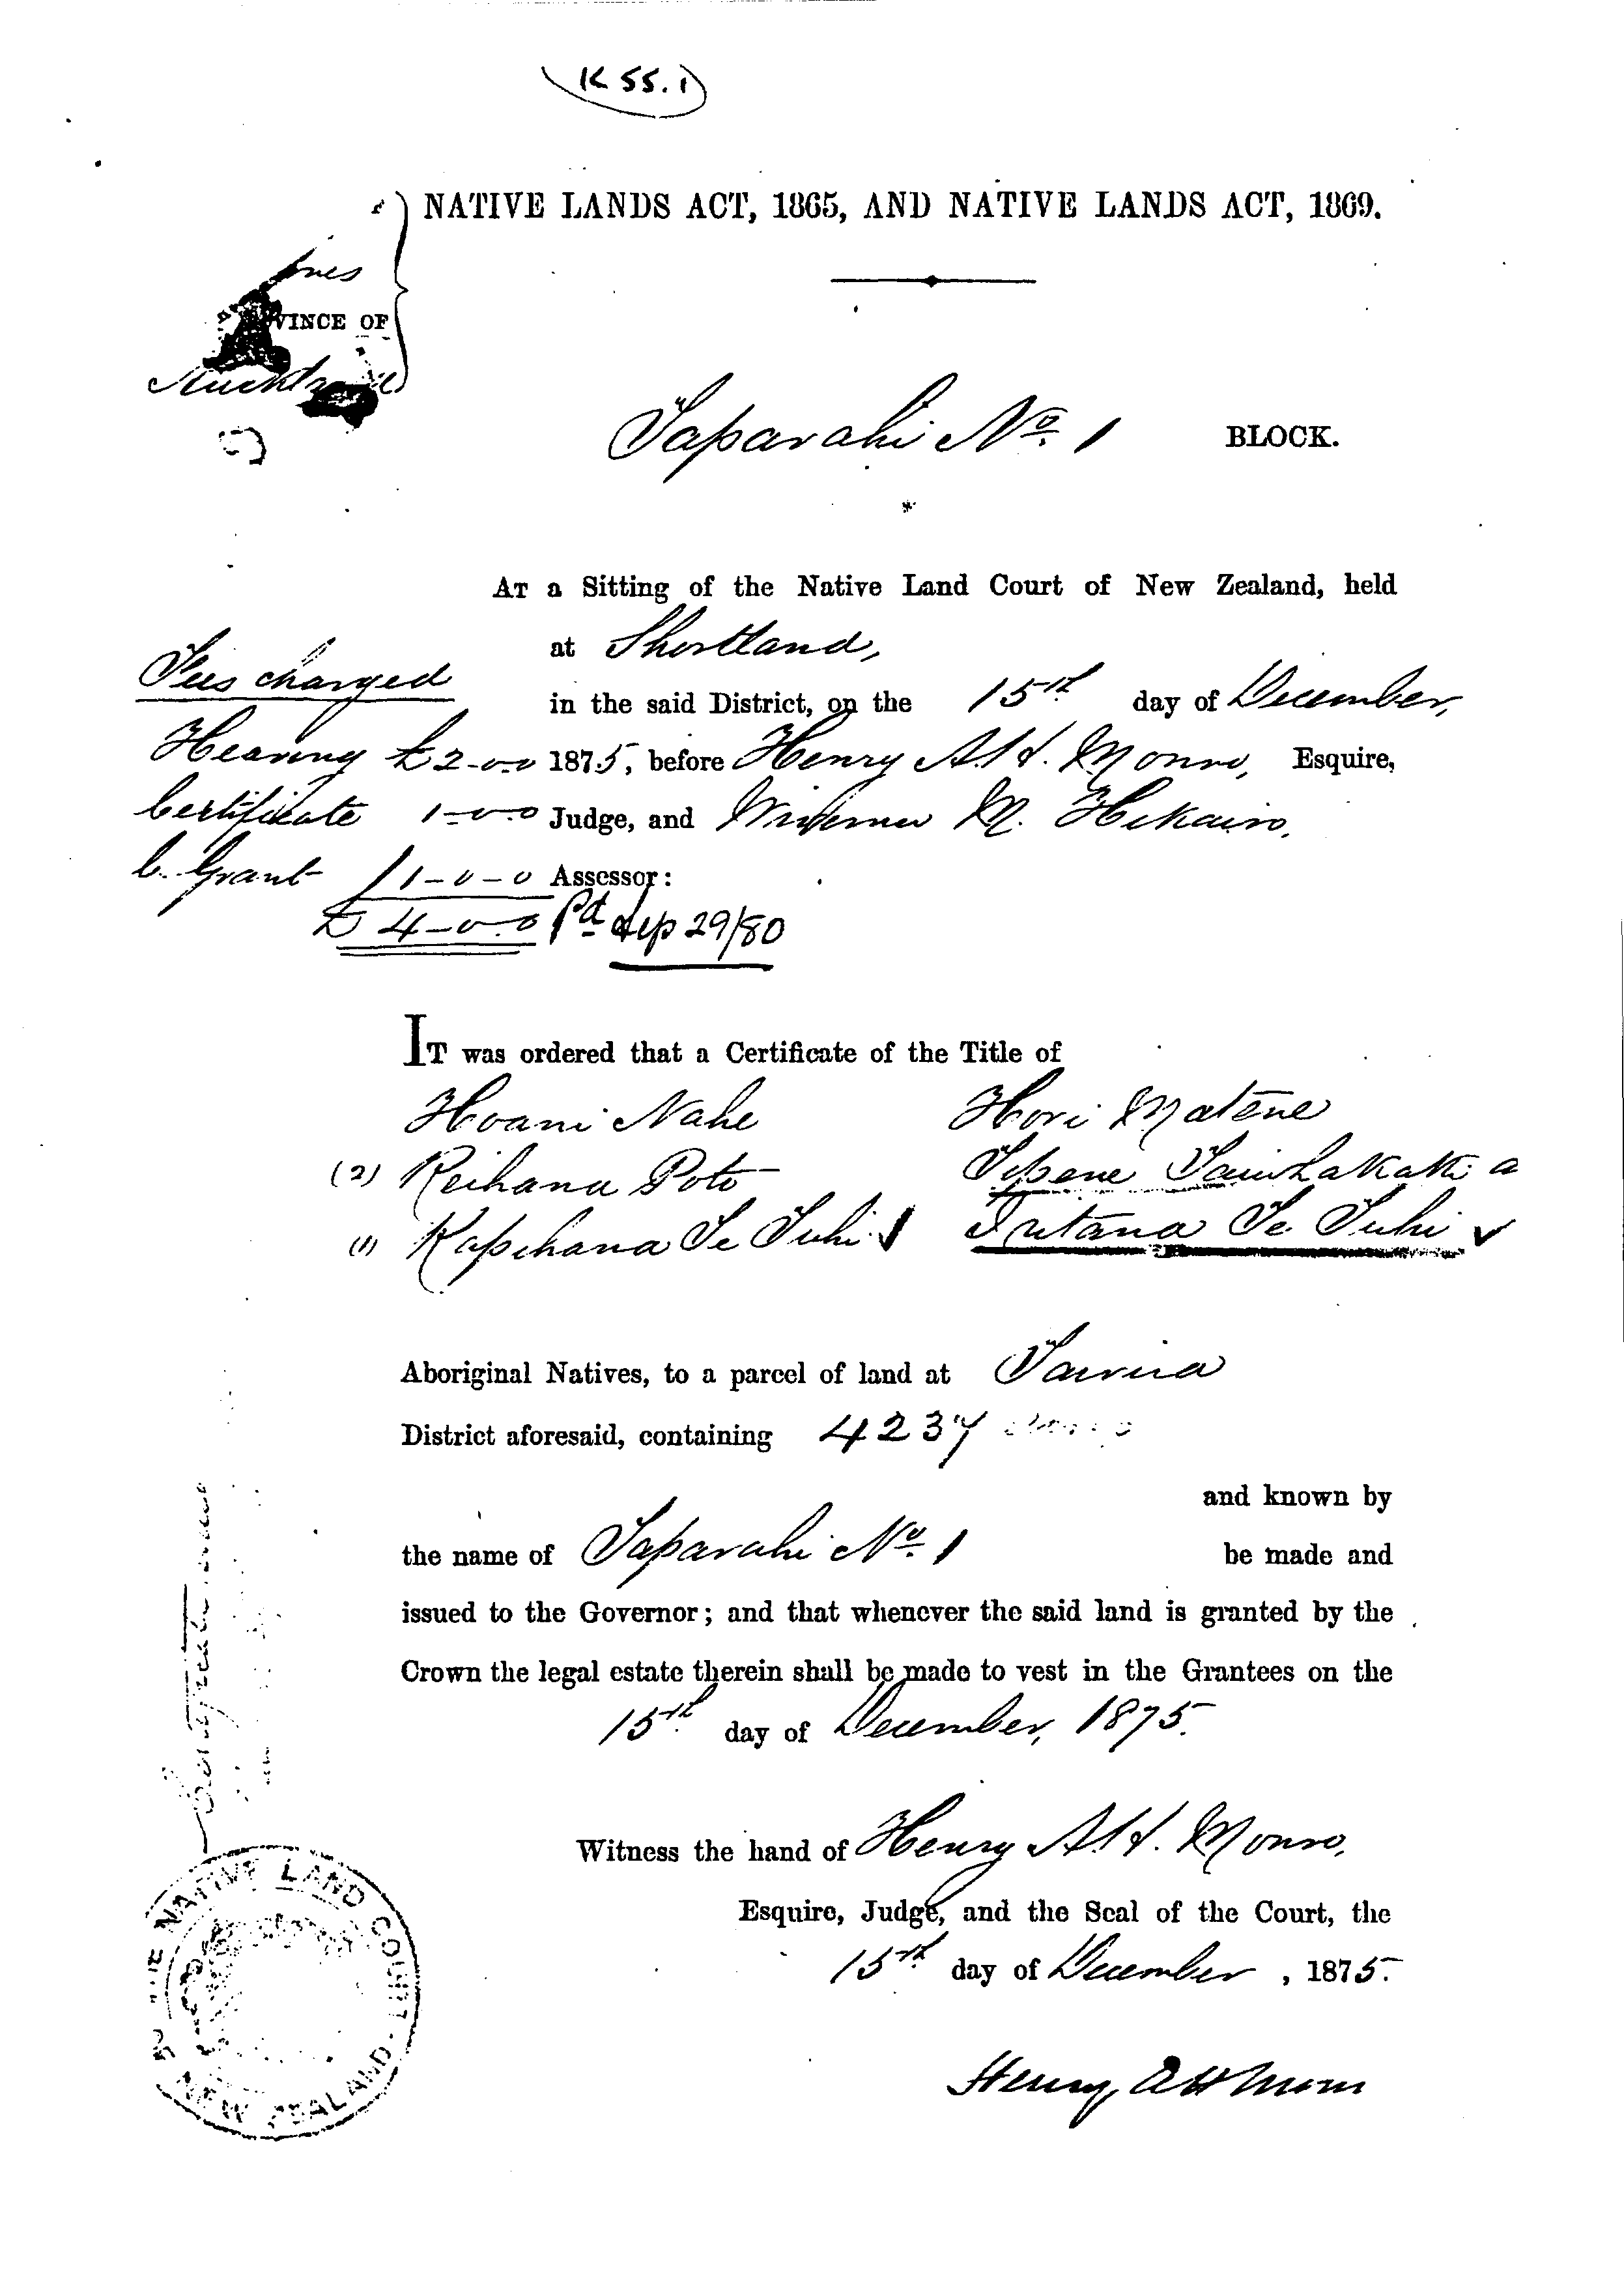 K 55.1
NATIVE LANDS ACT, 1865, AND NATIVE LANDS ACT, 1869.
VINCE OF
Auckland
Taparahi No. 1 BLOCK.
AT a Sitting of the Native Land Court of New Zealand, held
at Shortland,
Fees charged
in the said District, on the 15th day of December,
Hearing £2-0-0 1875, before Henry A. H. Monro, Esquire,
Certificate 1-0-0 Judge, and M. Hikairo,
C. Grant 1-0-0 Assessor:
£4-0-0 Pd Sep 29/80
IT was ordered that a Certificate of the Title of
Hoani Nahe Hori Matene
(2) Reihana Poto Tipene
(1) Kapihana Te Tuhi Te Tuhi
Aboriginal Natives, to a parcel of land at Tairua
District aforesaid, containing 4237 acres
and known by
the name of Taparahi No. 1 be made and
issued to the Governor; and that whenever the said land is granted by the
Crown the legal estate therein shall be made to vest in the Grantees on the
15th day of December, 1875.
Witness the hand of Henry A. H. Monro,
Esquire, Judge, and the Seal of the Court, the
15th day of December, 1875.
Henry A H Monro
NATIVE LAND COURT
NEW ZEALAND